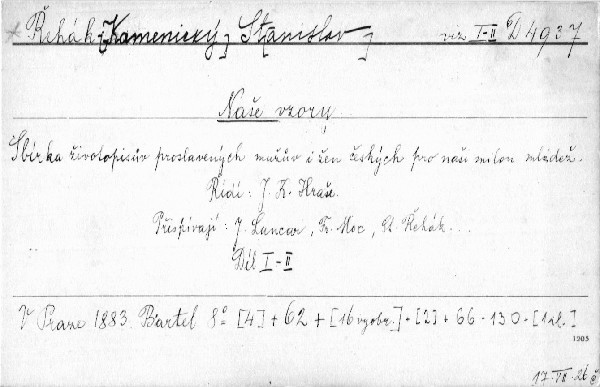 * Řehák [Kamenický] St[anislav] viz I-II D 4937
Naše vzory
Sbírka životopisův proslavených mužův i žen českých pro naši milou mládež.
Řídí: J. K. Hraše.
Přispívají: J. Lancar, Fr. Moc, St. Řehák...
Díl I-II
V Praze 1883. Bartel 8º [4] + 62 + [16 vyobr.] + [2] + 66-130 + [1 sl.]
1903
17. III. 26